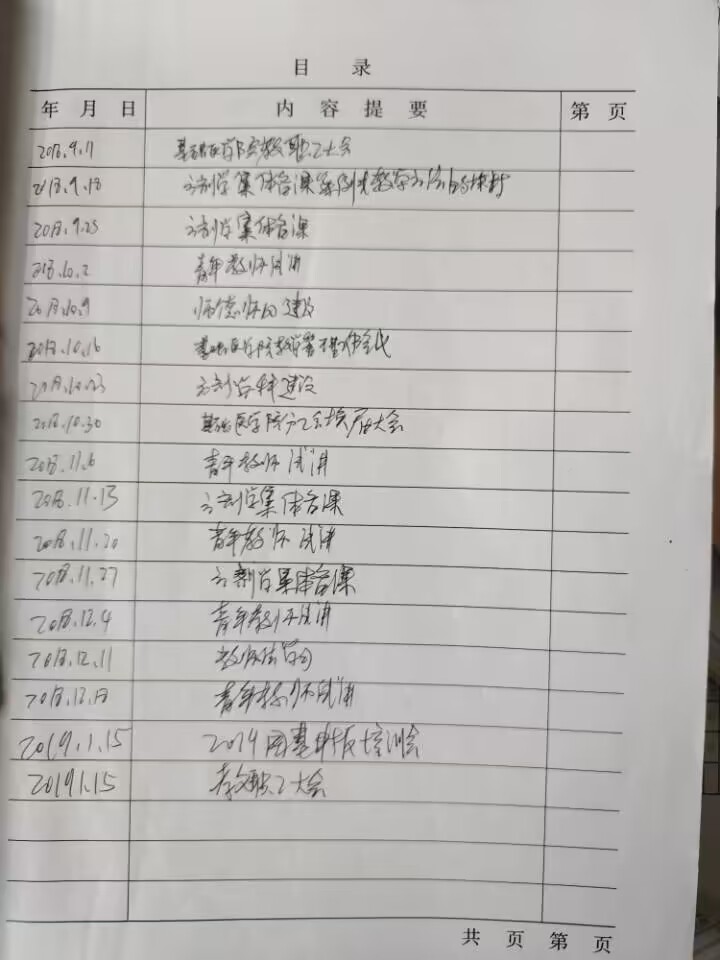 目 录
年 月 日 内 容 提 要 第 页
2018.9.11 基础医学院教职工大会
2018.9.18 方剂学集体备课案例式教学方法的探讨
2018.9.25 方剂学集体备课
2018.10.2 青年教师试讲
2018.10.9 师德师风建设
2018.10.16 基础医学院教学
2018.10.23 方剂学科建设
2018.10.30 基础医学院分工会换届大会
2018.11.6 青年教师试讲
2018.11.13 方剂学集体备课
2018.11.20 青年教师试讲
2018.11.27 方剂学集体备课
2018.12.4 青年教师试讲
2018.12.11 教师
2018.12.18 青年教师试讲
2019.1.15 2019国基申报培训会
2019.1.15 教职工大会
共 页 第 页